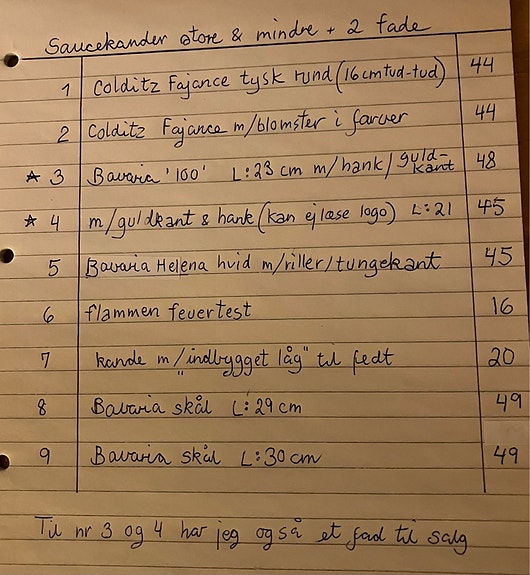 Saucekander store & mindre + 2 fade
1 Colditz Fajance tysk rund (16 cm tud-tud) 44
2 Colditz Fajance m/blomster i farver 44
☆ 3 Bavaria '100' L: 23 cm m/hank/guld-kant 48
☆ 4 m/guldkant & hank (kan ej læse logo) L: 21 45
5 Bavaria Helena hvid m/riller/tungekant 45
6 flammen feuertest 16
7 kande m/"indbygget låg" til fedt 20
8 Bavaria skål L: 29 cm 49
9 Bavaria skål L: 30 cm 49
Til nr 3 og 4 har jeg også et fad til salg